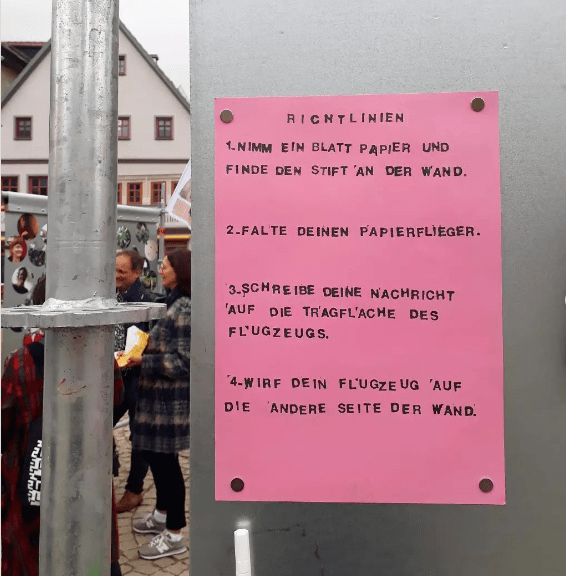 RICHTLINIEN
1-NIMM EIN BLATT PAPIER UND
FINDE DEN STIFT AN DER WAND.
2-FALTE DEINEN PAPIERFLIEGER.
3-SCHREIBE DEINE NACHRICHT
AUF DIE TRAGFLACHE DES
FLUGZEUGS.
4-WIRF DEIN FLUGZEUG AUF
DIE ANDERE SEITE DER WAND.